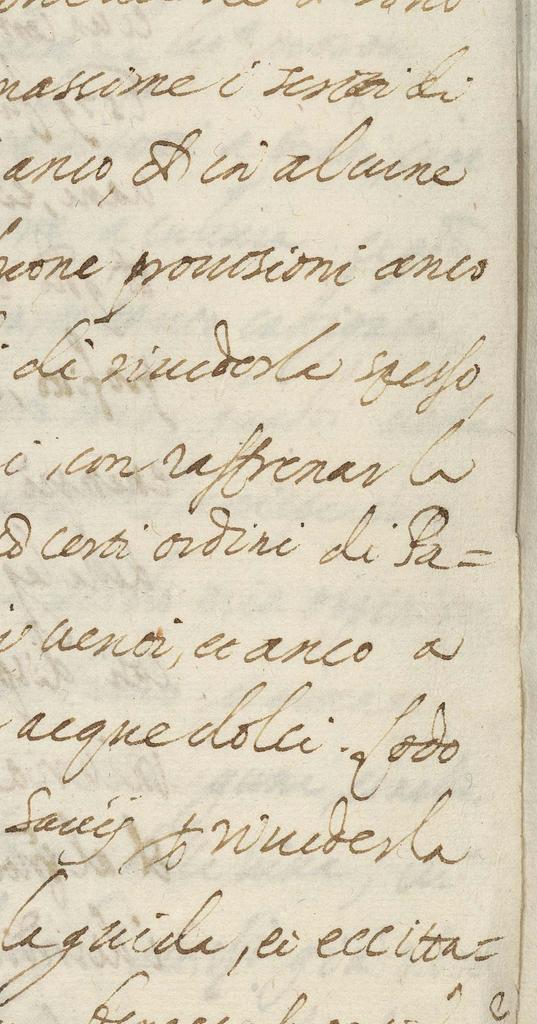 massime i
anco, et in alcune
buone prouisioni anco
di riuederla spesso,
i, con raffrenar la
ed certi ordini di Pa=
i uenti, et anco a
acque dolci. Lodo
Sauij riuederla
la guida, et eccitta=